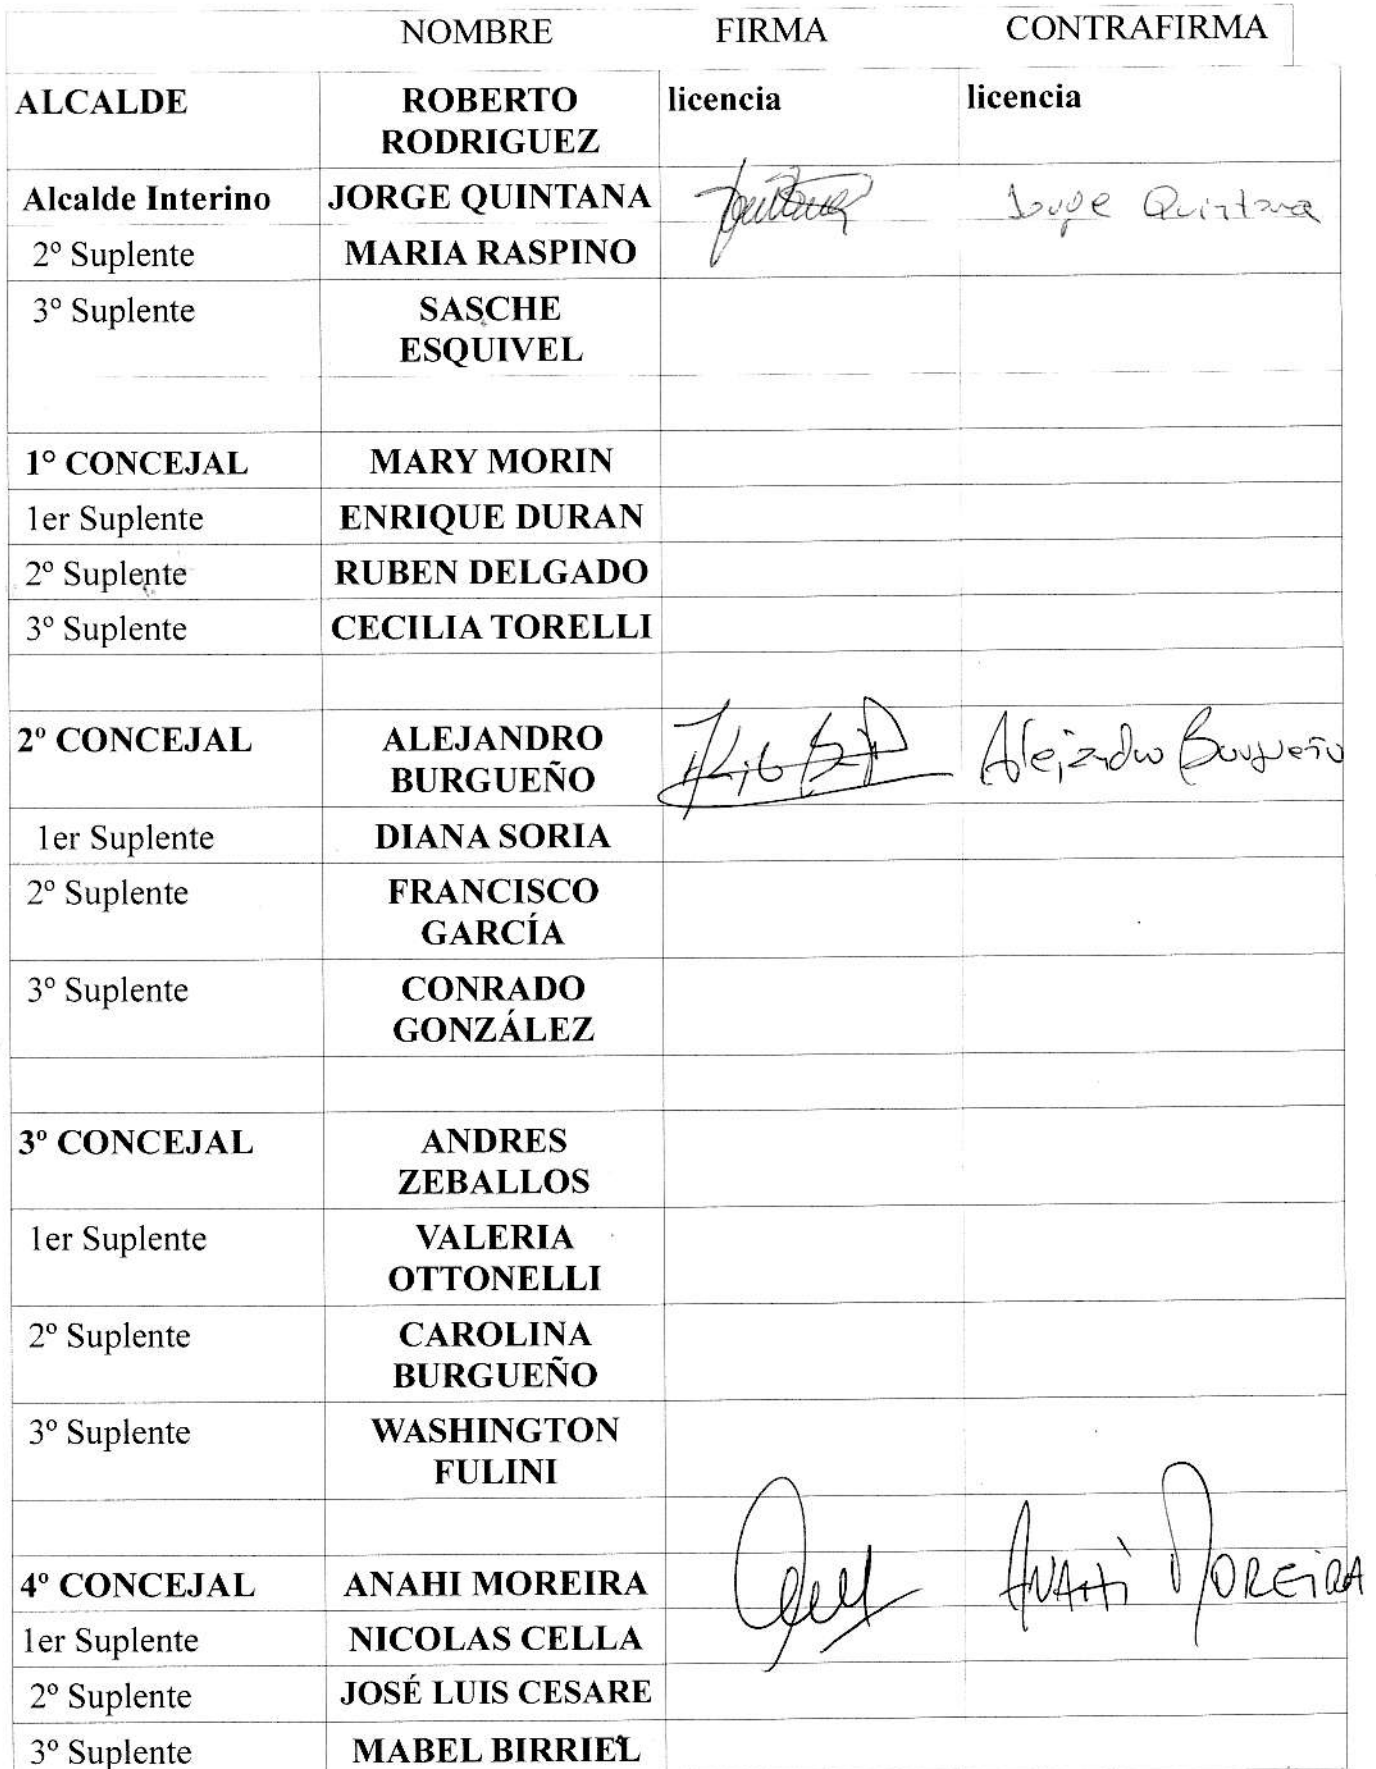 NOMBRE FIRMA CONTRAFIRMA
ALCALDE ROBERTO licencia licencia
RODRIGUEZ
Alcalde Interino JORGE QUINTANA Jorge Quintana
2º Suplente MARIA RASPINO
3º Suplente SASCHE
ESQUIVEL
1º CONCEJAL MARY MORIN
1er Suplente ENRIQUE DURAN
2º Suplente RUBEN DELGADO
3º Suplente CECILIA TORELLI
2º CONCEJAL ALEJANDRO Alejandro Burgueño
BURGUEÑO
1er Suplente DIANA SORIA
2º Suplente FRANCISCO
GARCÍA
3º Suplente CONRADO
GONZÁLEZ
3º CONCEJAL ANDRES
ZEBALLOS
1er Suplente VALERIA
OTTONELLI
2º Suplente CAROLINA
BURGUEÑO
3º Suplente WASHINGTON
FULINI
4º CONCEJAL ANAHI MOREIRA ANAHÌ MOREiRA
1er Suplente NICOLAS CELLA
2º Suplente JOSÉ LUIS CESARE
3º Suplente MABEL BIRRIEL